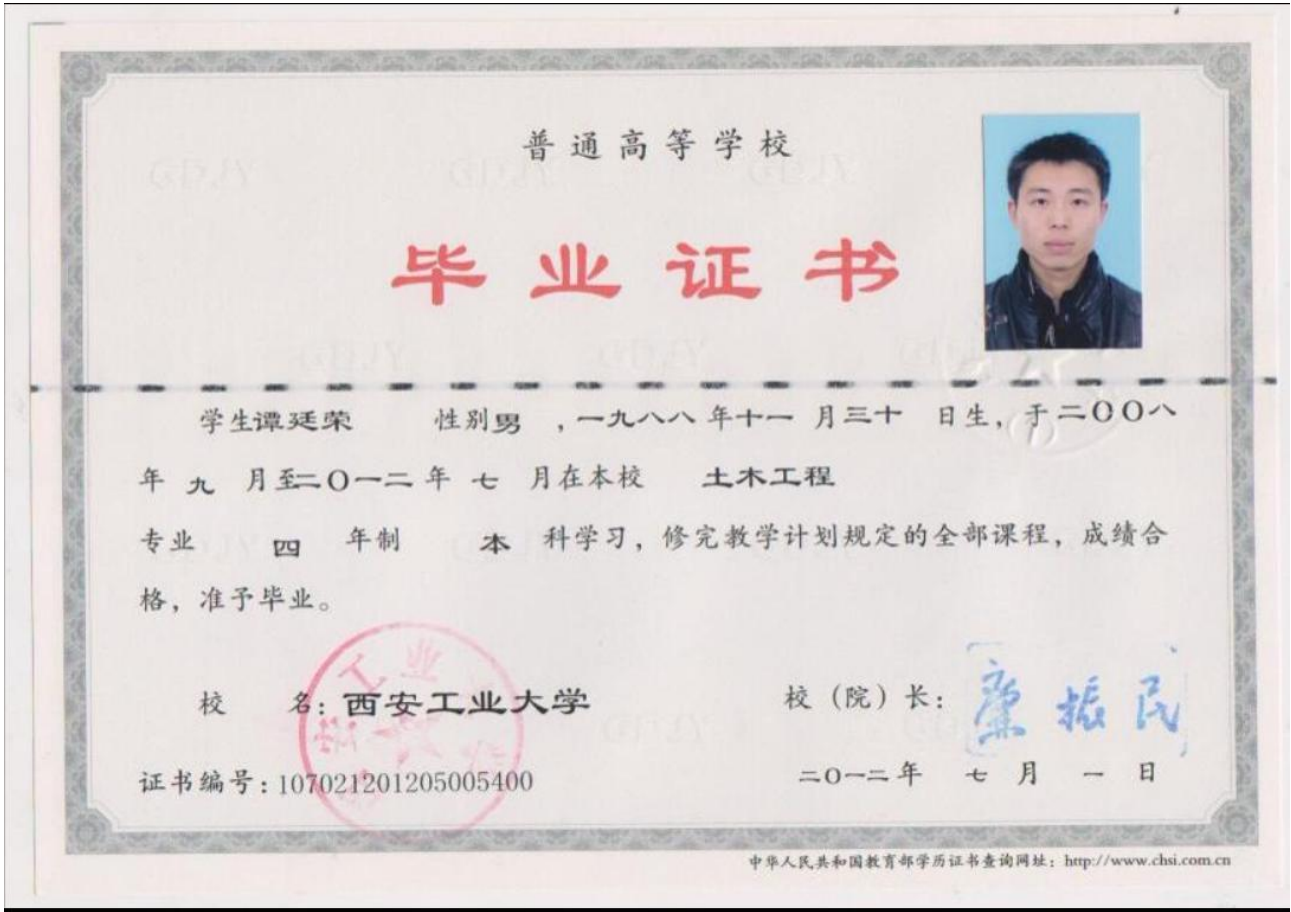 普通高等学校
毕业证书
学生谭廷荣 性别男 ,一九八八年十一月三十 日生, 于二〇〇八
年 九 月至二〇一二年 七 月在本校 土木工程
专业 四 年制 本 科学习, 修完教学计划规定的全部课程, 成绩合
格, 准予毕业。
校 名: 西安工业大学
校(院)长: 廉振民
证书编号: 107021201205005400
二〇一二年 七 月 一 日
中华人民共和国教育部学历证书查询网址: http://www.chsi.com.cn